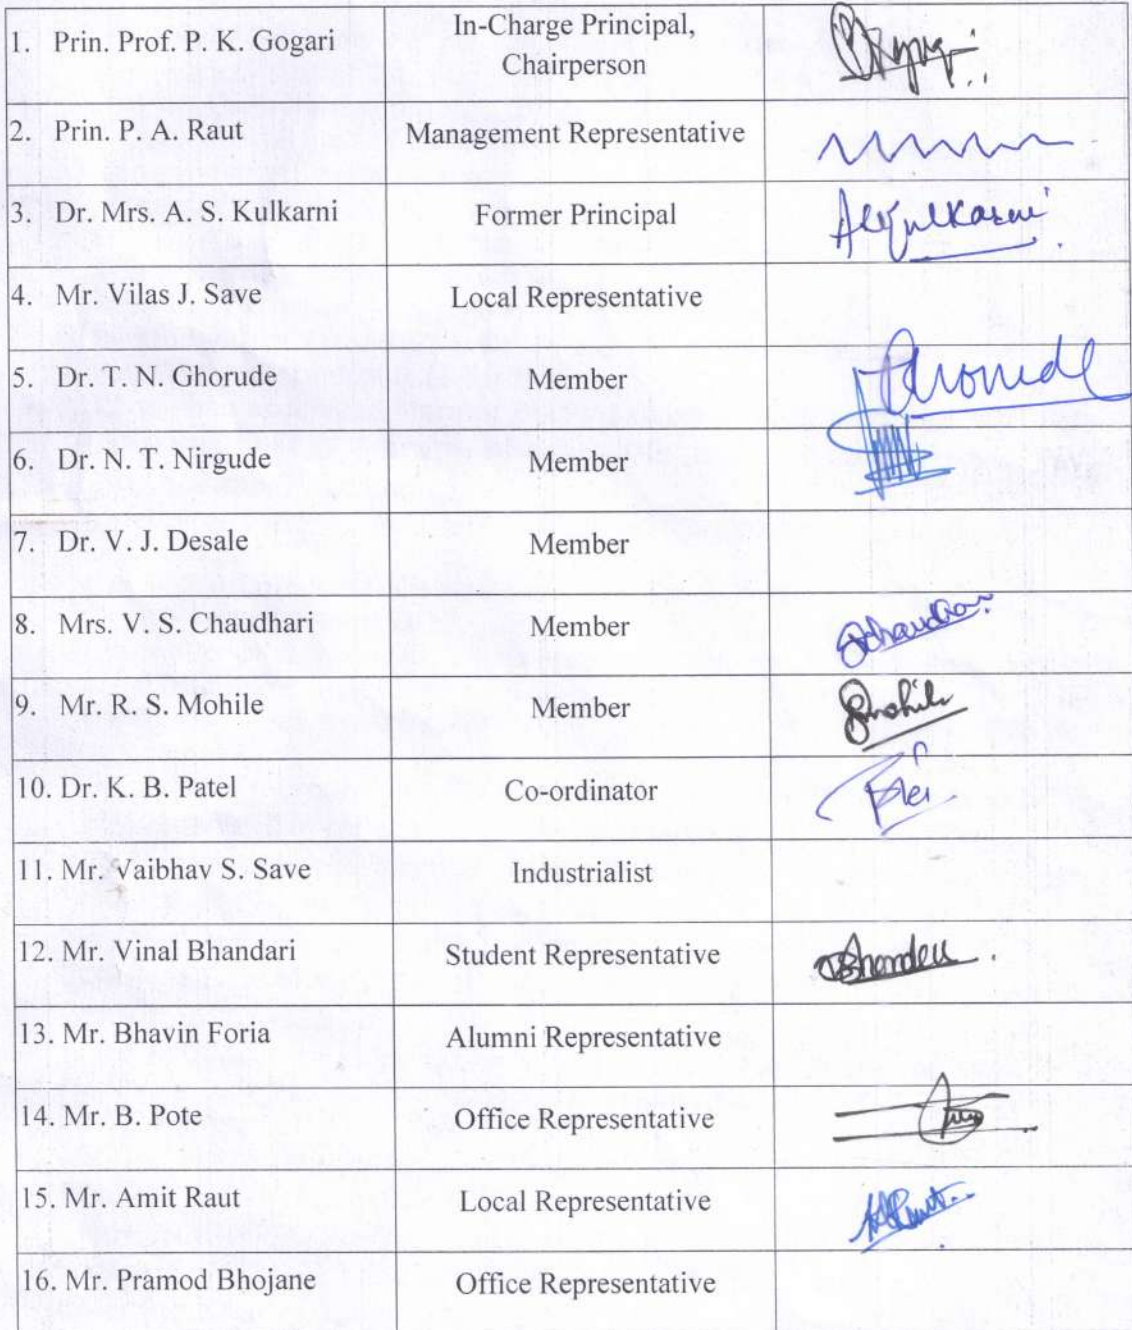 1. Prin. Prof. P. K. Gogari
In-Charge Principal,
Chairperson
2. Prin. P. A. Raut
Management Representative
3. Dr. Mrs. A. S. Kulkarni
Former Principal
ASKulkarni
4. Mr. Vilas J. Save
Local Representative
5. Dr. T. N. Ghorude
Member
6. Dr. N. T. Nirgude
Member
7. Dr. V. J. Desale
Member
8. Mrs. V. S. Chaudhari
Member
9. Mr. R. S. Mohile
Member
10. Dr. K. B. Patel
Co-ordinator
11. Mr. Vaibhav S. Save
Industrialist
12. Mr. Vinal Bhandari
Student Representative
13. Mr. Bhavin Foria
Alumni Representative
14. Mr. B. Pote
Office Representative
15. Mr. Amit Raut
Local Representative
16. Mr. Pramod Bhojane
Office Representative